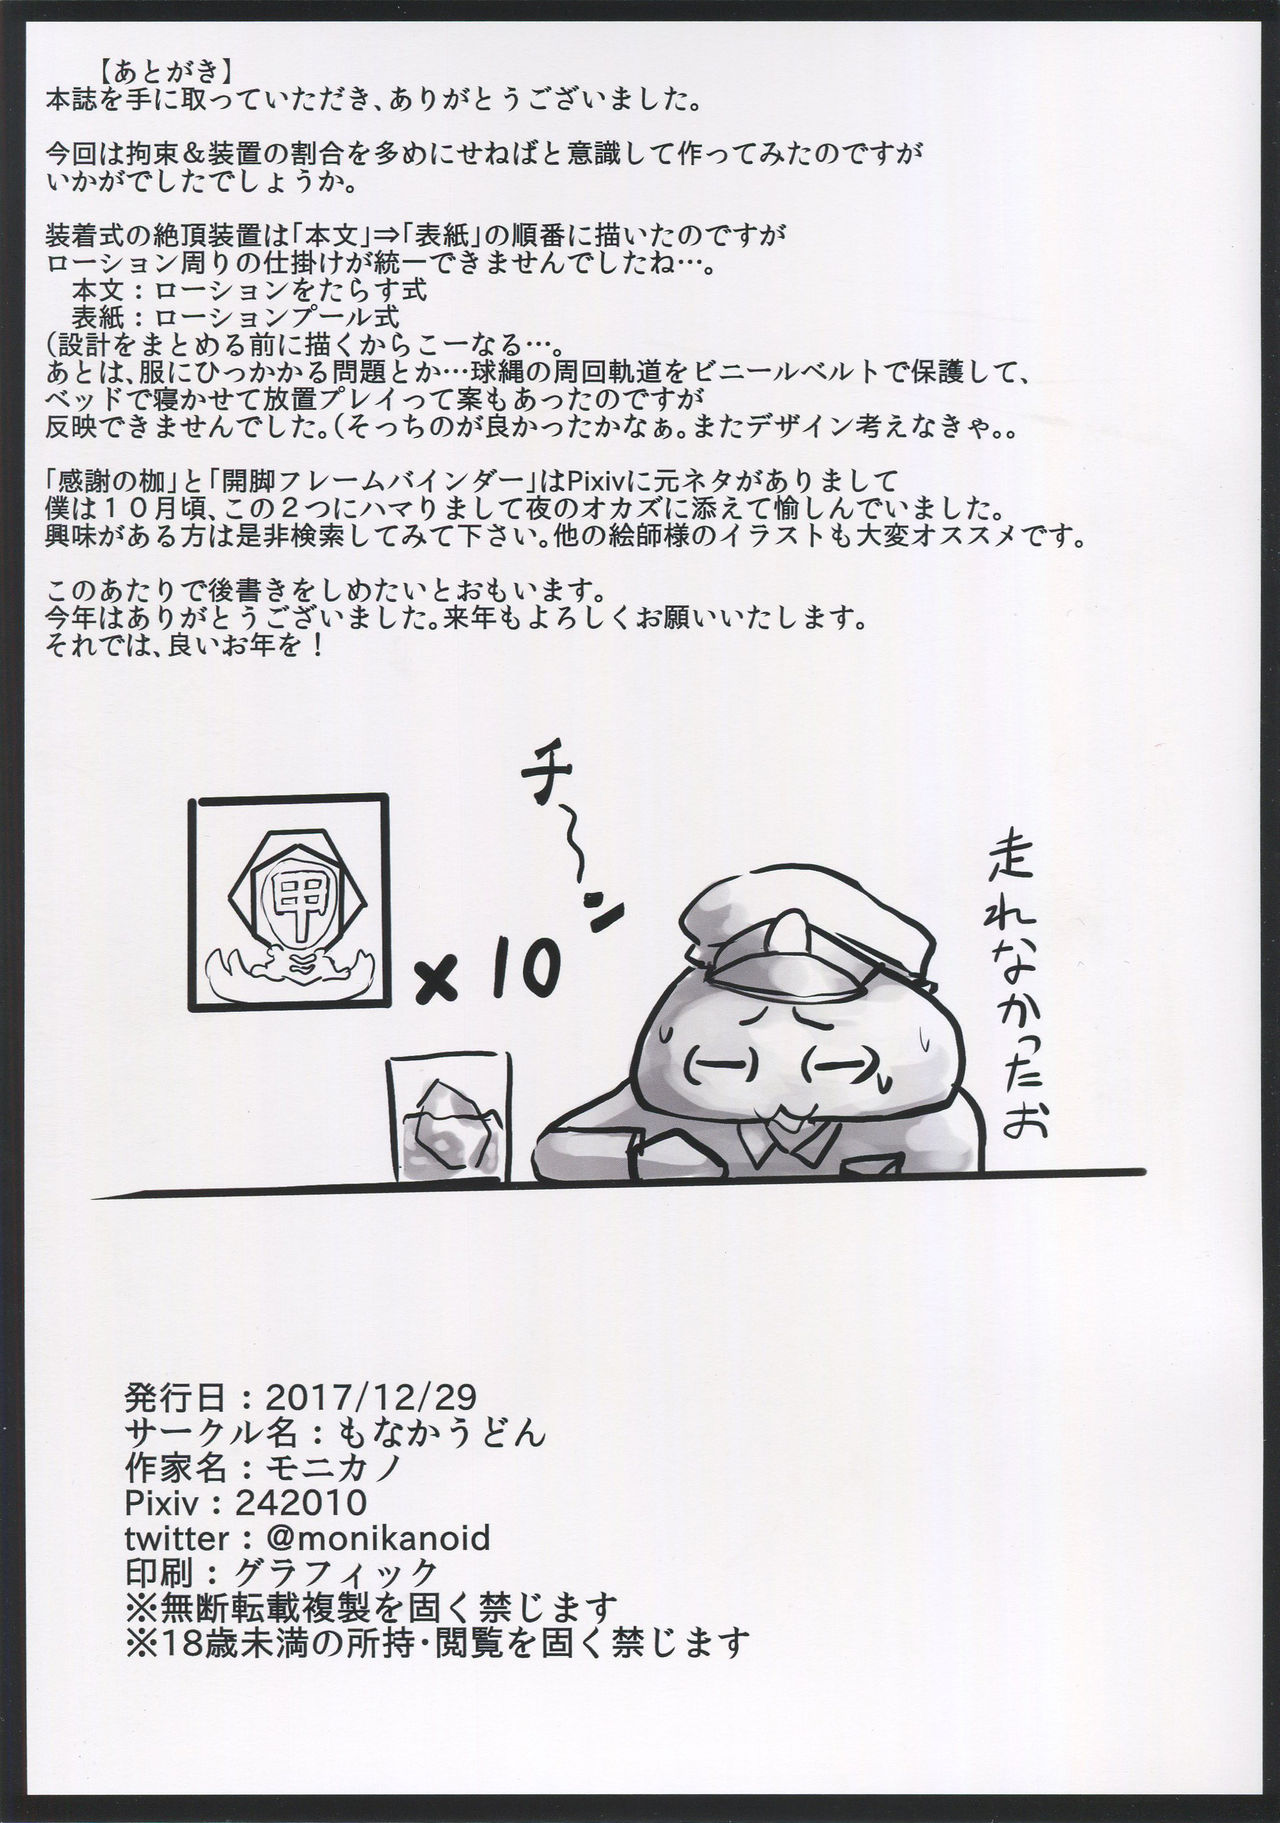 【あとがき】
本誌を手に取っていただき、ありがとうございました。
今回は拘束&装置の割合を多めにせねばと意識して作ってみたのですが
いかがでしたでしょうか。
装着式の絶頂装置は「本文」⇒「表紙」の順番に描いたのですが
ローション周りの仕掛けが統一できませんでしたね…。
本文:ローションをたらす式
表紙:ローションプール式
(設計をまとめる前に描くからこーなる…。
あとは、服にひっかかる問題とか…球縄の周回軌道をビニールベルトで保護して、
ベッドで寝かせて放置プレイって案もあったのですが
反映できませんでした。(そっちのが良かったかなぁ。またデザイン考えなきゃ。。
「感謝の枷」と「開脚フレームバインダー」はPixivに元ネタがありまして
僕は10月頃、この2つにハマりまして夜のオカズに添えて愉しんでいました。
興味がある方は是非検索してみて下さい。他の絵師様のイラストも大変オススメです。
このあたりで後書きをしめたいとおもいます。
今年はありがとうございました。来年もよろしくお願いいたします。
それでは、良いお年を!
チ〜ン
走れなかったお
甲
×10
発行日:2017/12/29
サークル名:もなかうどん
作家名:モニカノ
Pixiv:242010
twitter:@monikanoid
印刷:グラフィック
※無断転載複製を固く禁じます
※18歳未満の所持・閲覧を固く禁じます